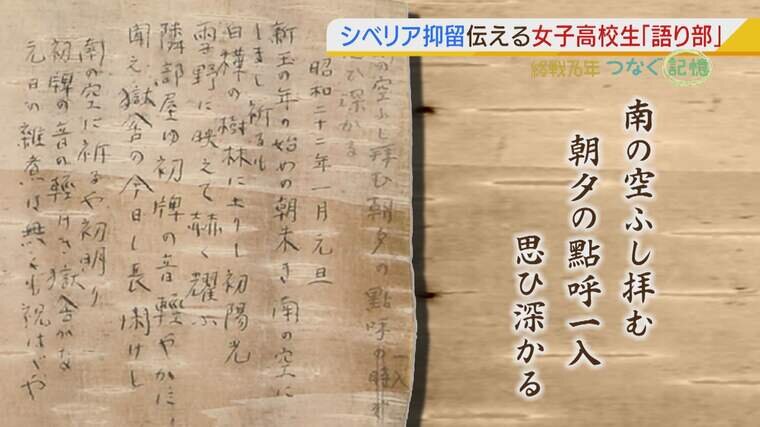 シベリア抑留伝える女子高校生「語り部」
終戦76年 つなぐ記憶
南の空ふし拝む
朝夕の點呼一入
思ひ深かる
の空ふし拝む朝夕の點呼の時 一入
思ひ深かる
昭和二十二年一月元旦
新玉の年の始めの朝未き南の空に
しまし祈るも
白樺の樹林に りし初陽光
雪野に映えて赫く耀ふ
隣部屋ゆ初牌の音軽やかに
聞え獄舎の今日し長閑けし
南の空に祈るや初明り
初牌の音の輕けき獄舎かな
元日の雑煮は無くも祝はばや